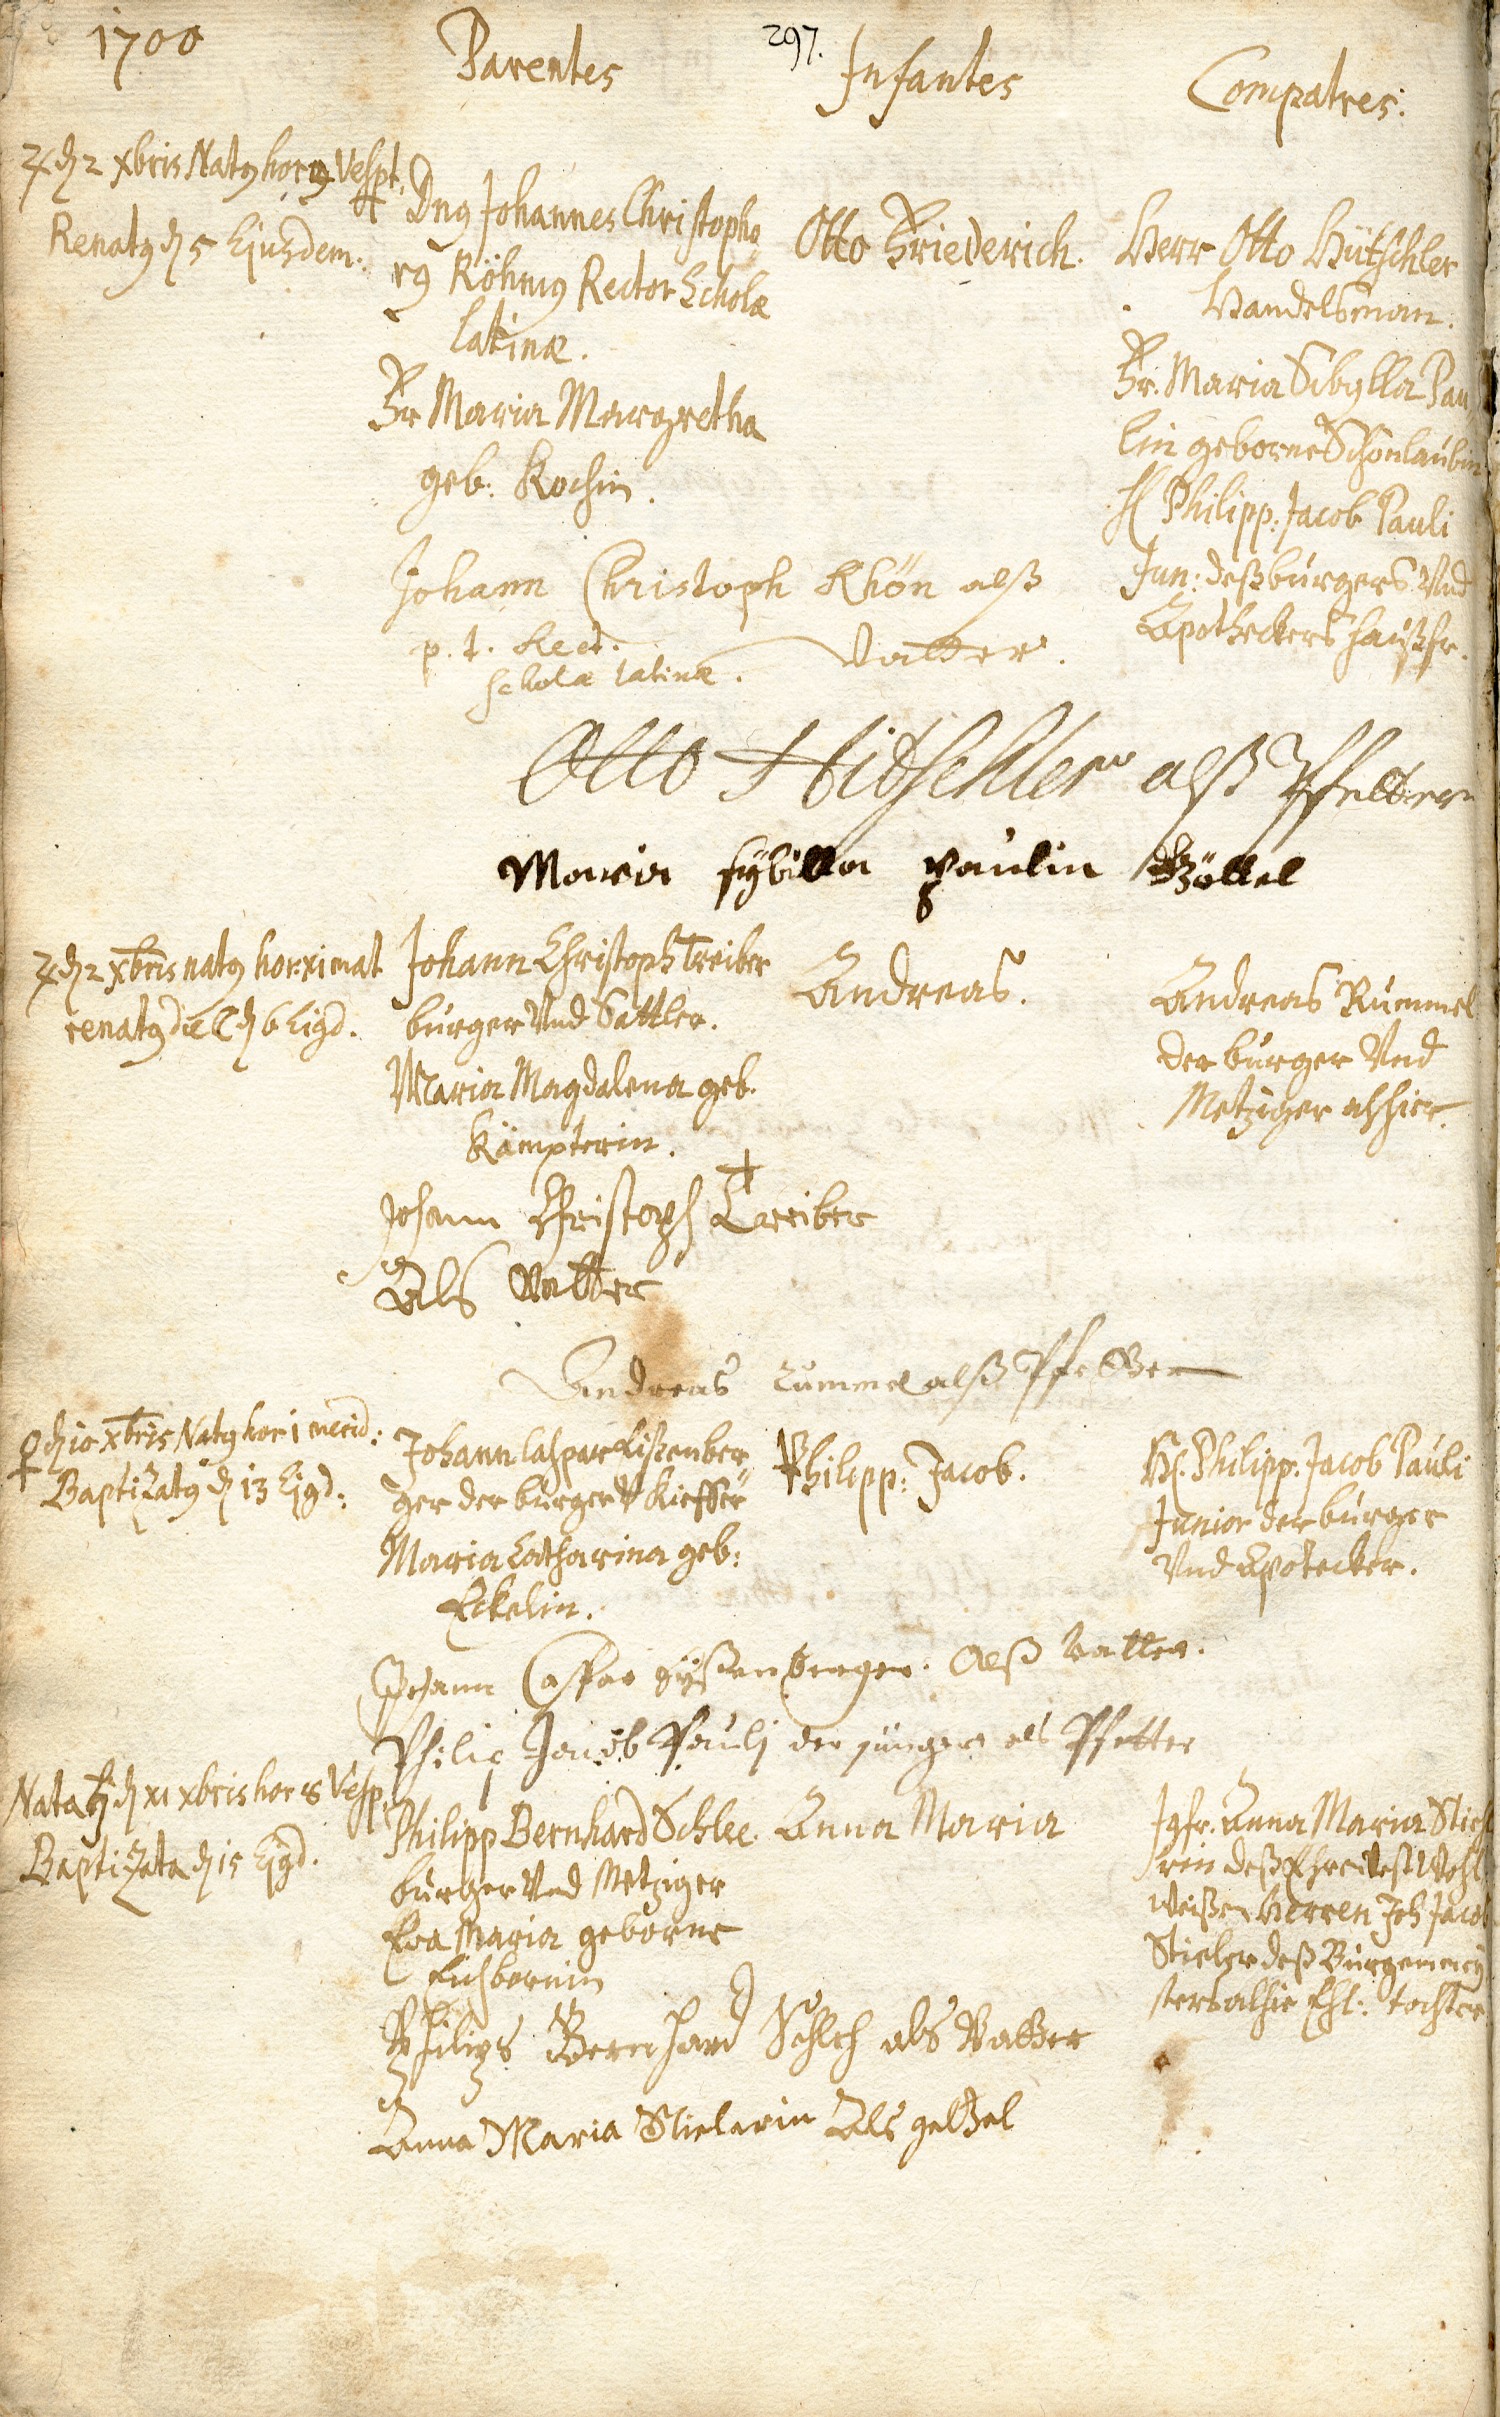 1700
Parentes
297.
Infantes
Compatres:
♃ d 2 xbris Natg hor 9 Vesp.
Renatg d 5 Ejusdem.
Dng Johannes Christopho
rg Röhnig Rector Scholæ
latinæ.
Fr Maria Margretha
geb: Kochin.
Otto Friederich.
Herr Otto Hütschler
Handelsman.
Fr. Maria Sibylla Pau
lin geborne Schonlaubin
H Philipp: Jacob Pauli
Jun: deß burgers Und
Apotheckers haußfr.
Johann Christoph Khön alß
p. t. Rect.
scholæ latinæ. Vatter.
Otto Hitschler alß Pfetter
Maria sÿbilla paulin Göttel
♃ d 2 xbris natg hor xi mat
renatg die ☾ d 6 Eigd.
Johann Christoph Treiber
burger Und Sattler.
Maria Magdalena geb.
Kämpterin.
Andreas.
Andreas Rummel
der burger Und
Metziger alhier.
Johann Christoph Treiber
Als Vatter
Andreas Rummel alß Pfetter
♀ d 10 xbris Natg hor 1 merid:
Baptizatg d 13 Ejgd:
Johann Caspar Lißenber
ger der burger V Kieffer
Maria Catharina geb:
Eckelin.
Philipp: Jacob.
H. Philipp: Jacob Pauli
Junior der burger
Und Apotecker.
Johann Caspar Lÿßenberger. Alß Vatter.
Philip Jacob Pauli der jünger als Pfetter
Nata ♄ d xi xbris hor 8 Vesp.
Baptizata d 15 Ejgd.
Philipp Bernhard Schlee
burger Und Metziger
Eva Maria geborne
Eichbornin
Anna Maria
Jgfr. Anna Maria Stiel
rin deß Ehrevest Wohl
weißen Herren Joh Jacob
Stieler deß Burgemey
sters alhie Ehl: tochter
Philips Bernhard Schleh als Vatter
Anna Maria Stielerin Als gettel